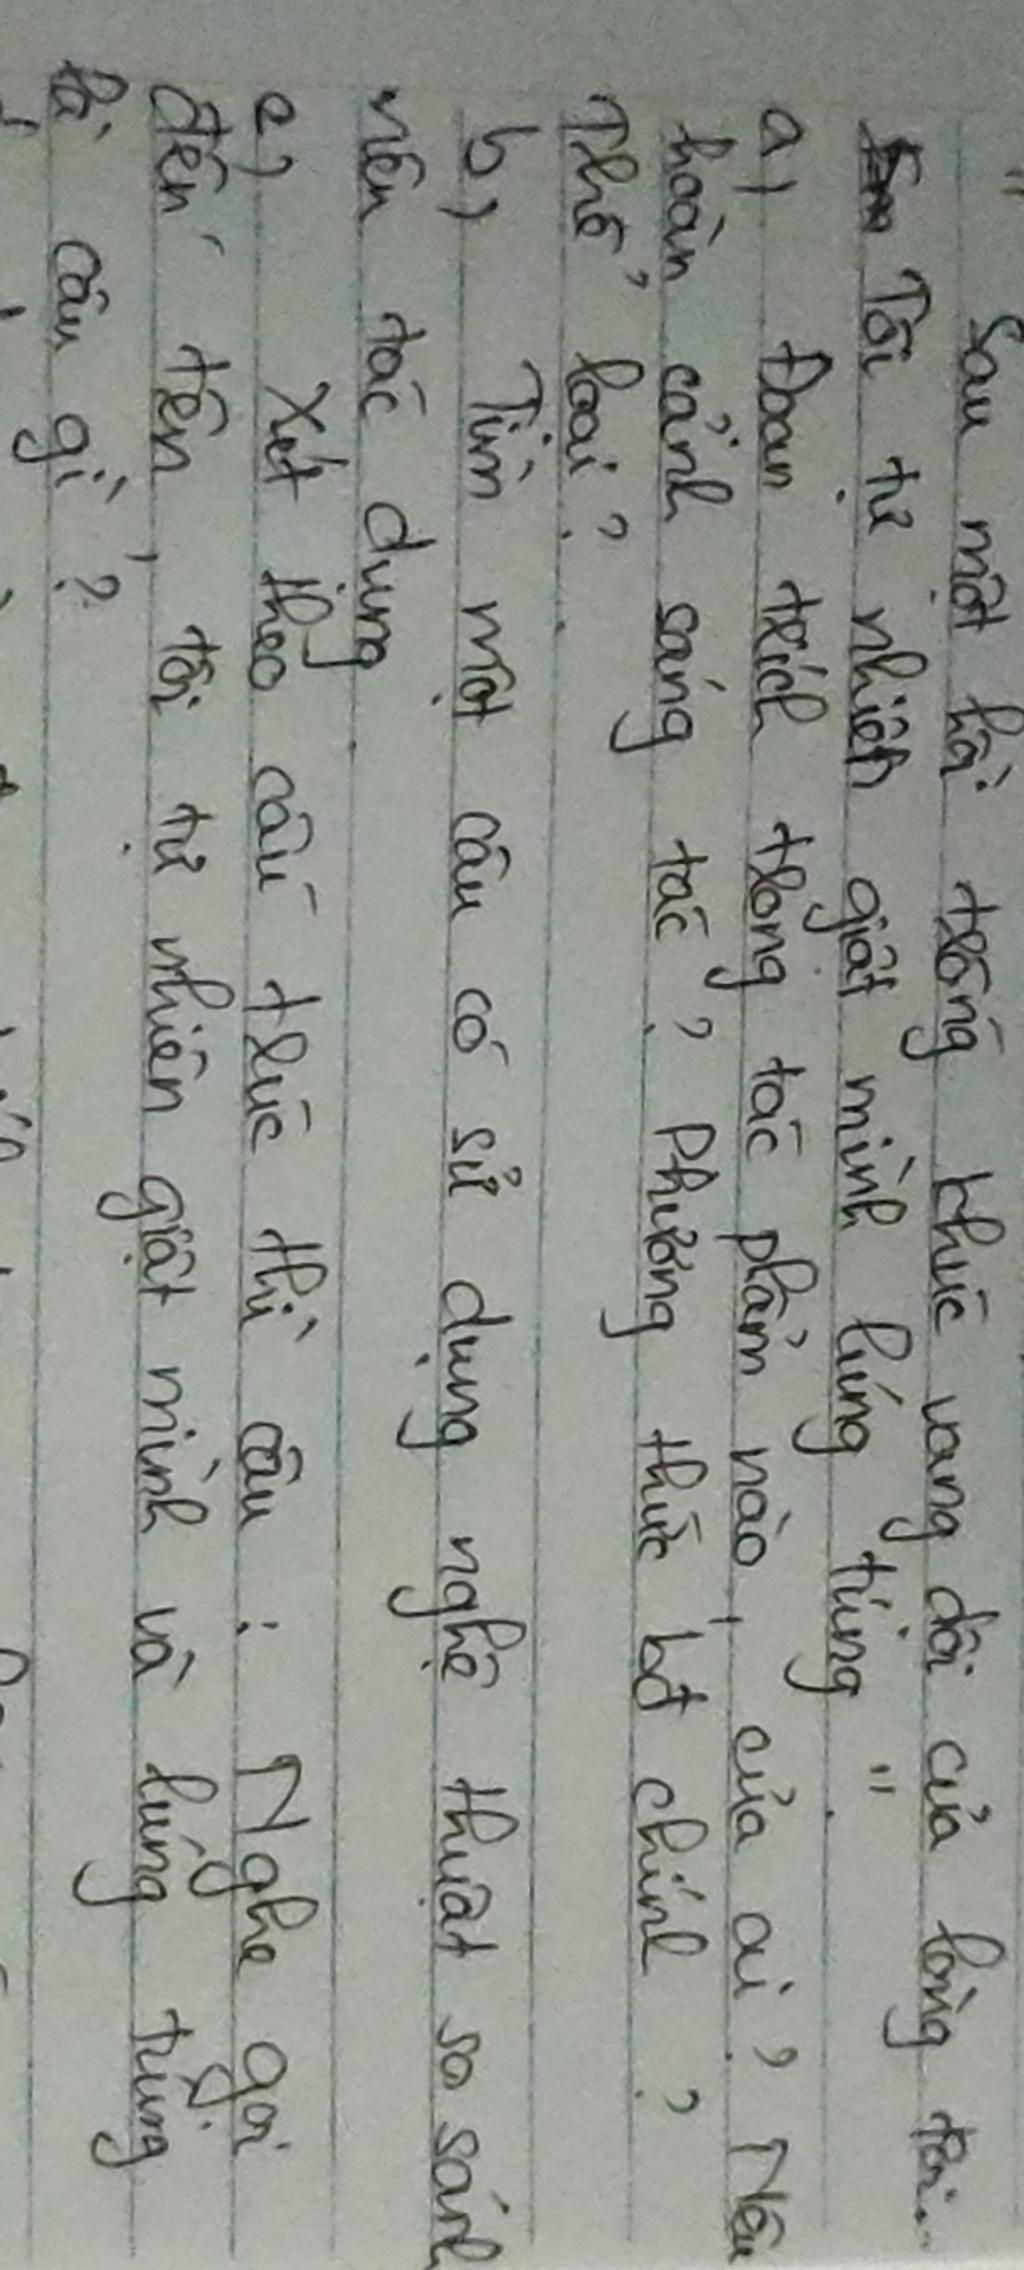 " Sau một hồi trống thúc vang dội cả lòng tôi...
Tôi tự nhiên giật mình lúng túng "
a, Đoạn trích trong tác phẩm nào, của ai? Nêu
hoàn cảnh sáng tác? Phương thức bđ chính?
Thể loại?
b, Tìm một câu có sử dụng nghệ thuật so sánh
nêu tác dụng
c, Xét theo cấu trúc thì câu : Nghe gọi
đến tên, tôi tự nhiên giật mình và lúng túng
là câu gì?